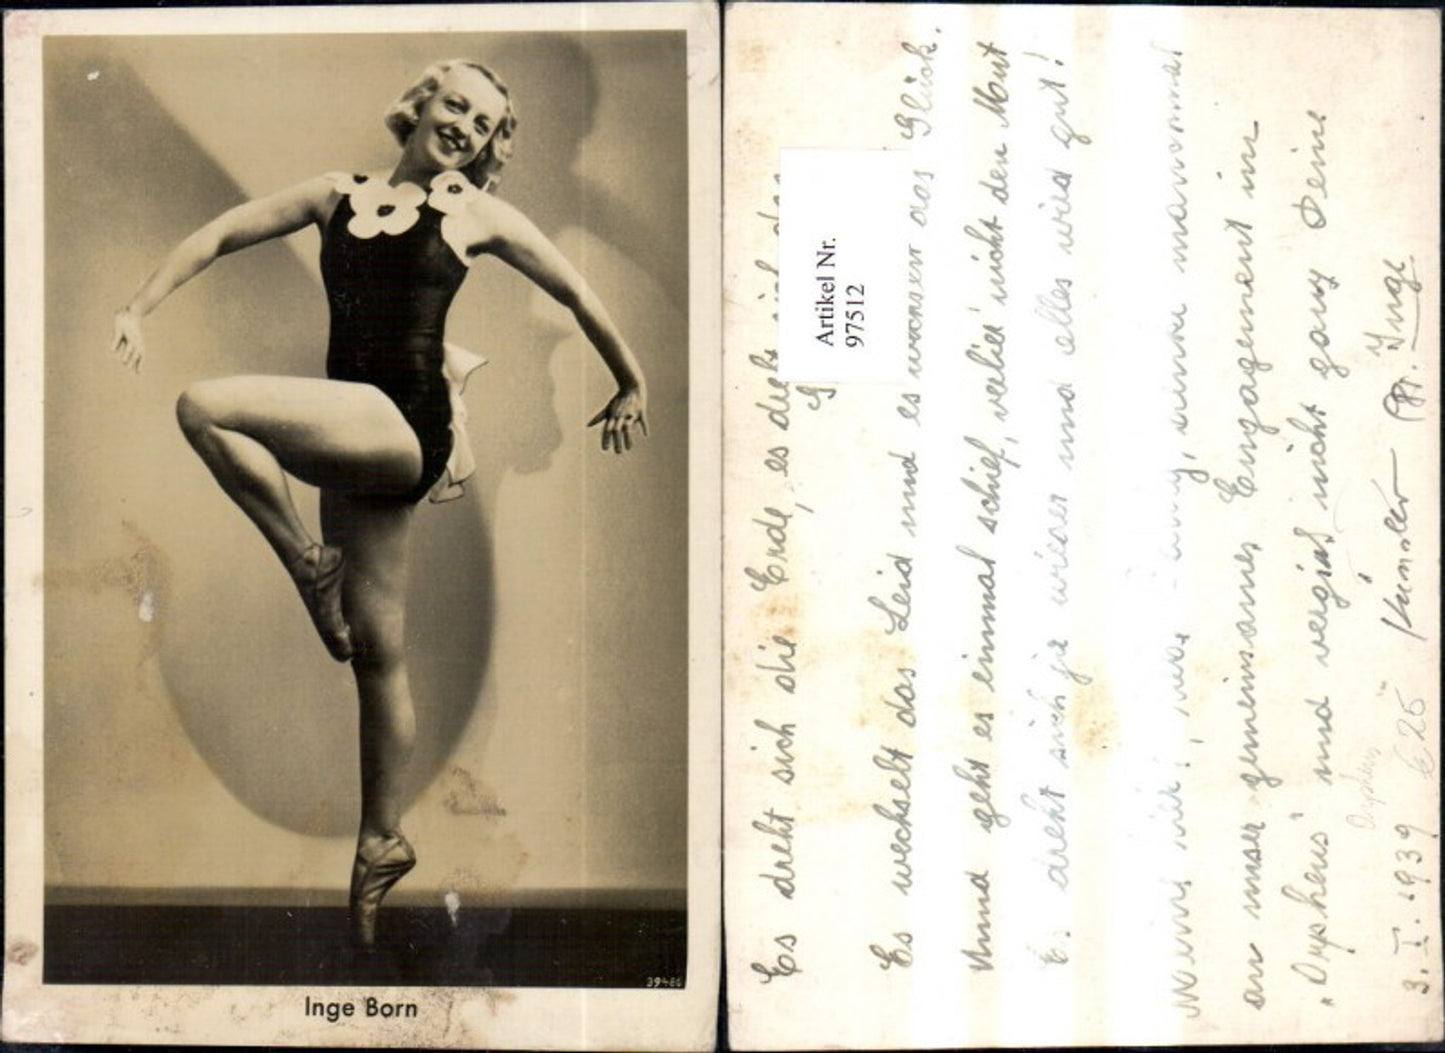 39486
Inge Born
Artikel Nr.
97512
Es dreht sich die Erde, es dreht sich das
Es wechselt das Leid und es wechselt das Glück.
Und geht es einmal schief, verlier' nicht den Mut
Es dreht sich ja wieder und alles wird gut!
an unser gemeinsames Engagement im
„Orpheus" und vergiß nicht ganz Deine
Künstler Inge
Orpheus
3. I. 1939 €25